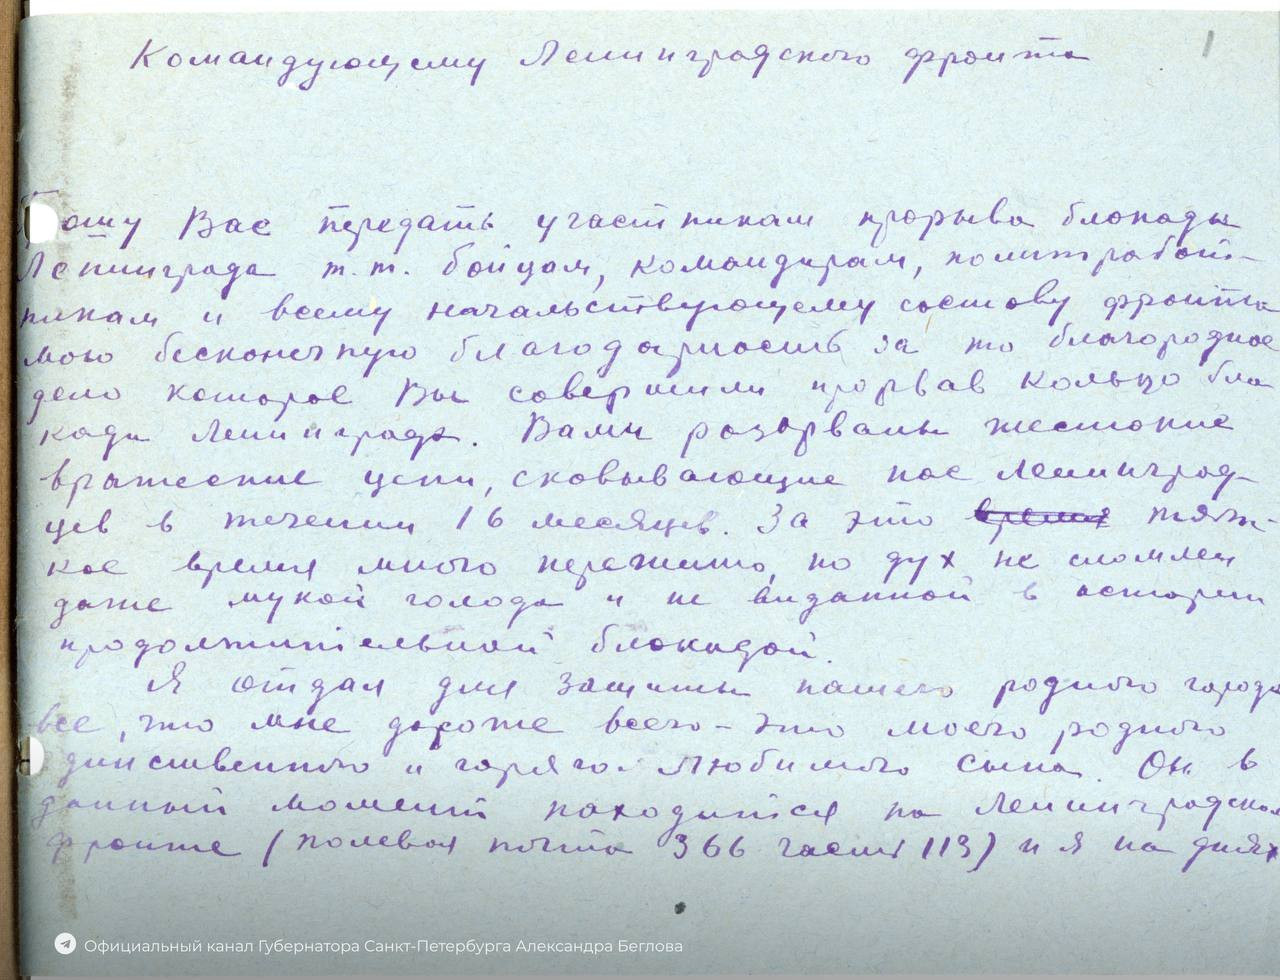 Командующему Ленинградского фронта
1
Прошу Вас передать участникам прорыва блокады
Ленинграда т.т. бойцам, командирам, политработ-
никам и всему начальствующему составу фронта
мою бесконечную благодарность за то благородное
дело которое Вы совершили прорвав кольцо бло
кады Ленинграда. Вами разорваны жестокие
вражеские цепи, сковывающие нас Ленинград-
цев в течении 16 месяцев. За это время тяж-
кое время много пережито, но дух не сломлен
даже мукой голода и не виданной в истории
продолжительной блокадой.
Я отдал для защиты нашего родного города
все, что мне дороже всего – это моего родного
единственного и горячо любимого сына. Он в
данный момент находится на Ленинградском
фронте (полевая почта 366 часть 113) и я на днях
Официальный канал Губернатора Санкт-Петербурга Александра Беглова